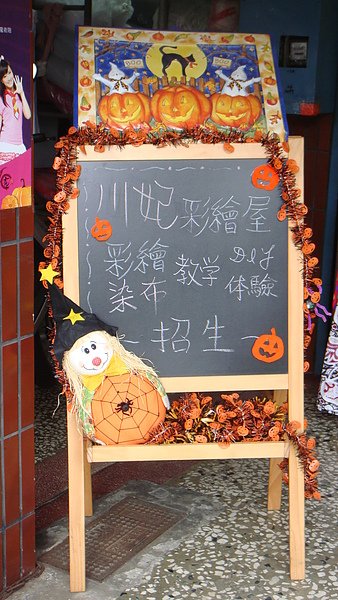 川妃彩繪屋
彩繪 教学 DIY
染布 体驗
~招生~